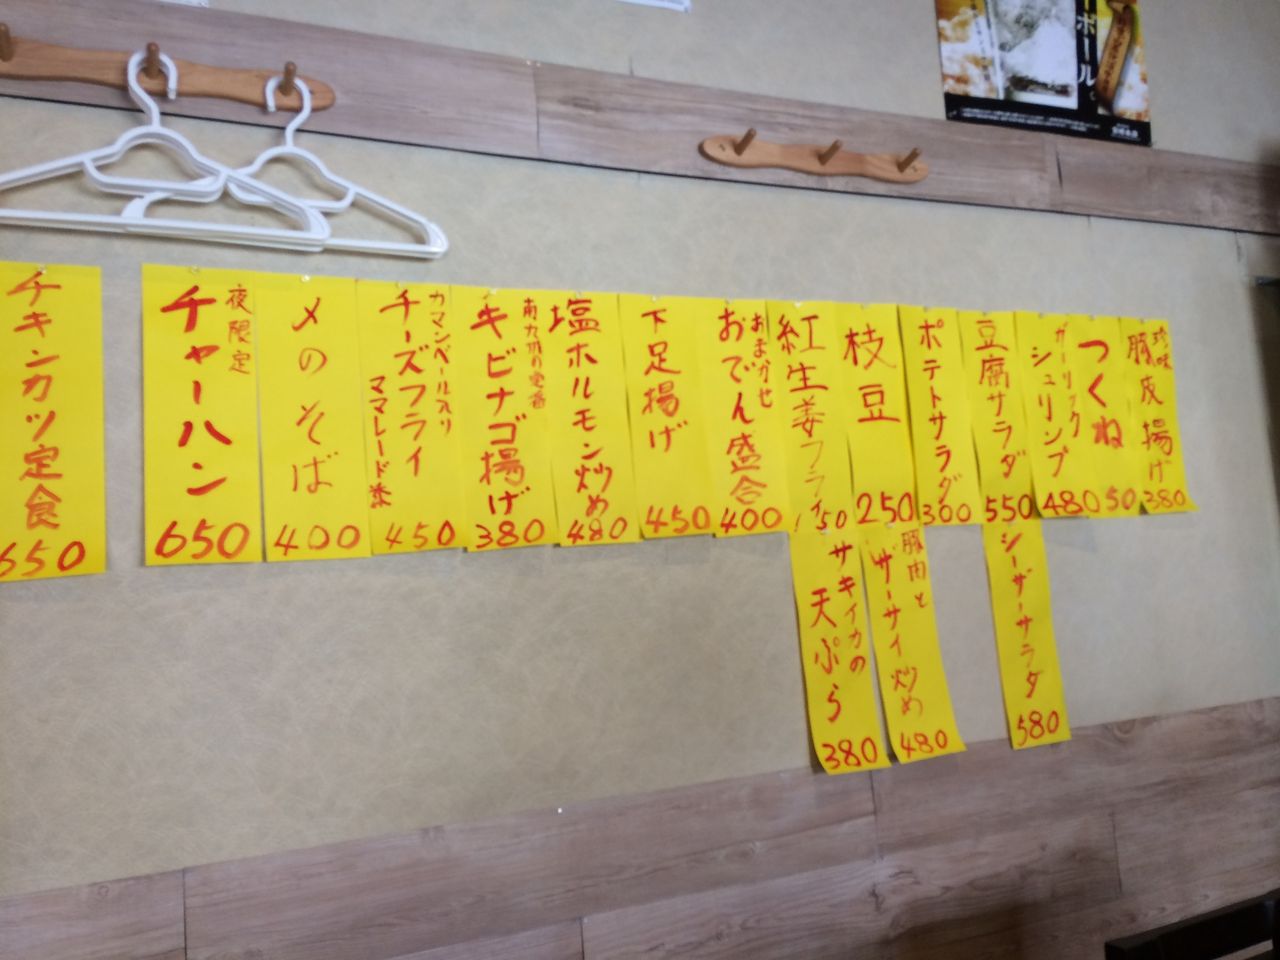 ーボール。
チキンカツ定食
650
夜限定
チャーハン
650
〆のそば
400
カマンベール入り
チーズフライ
ママレード添
450
南九州の定番
キビナゴ揚げ
380
塩ホルモン炒め
480
下足揚げ
450
おまかせ
おでん盛合
400
紅生姜フライ
150
枝豆
250
ポテトサラダ
300
豆腐サラダ
550
ガーリック
シュリンプ
480
つくね
50
珍味
豚皮揚げ
380
サキイカの
天ぷら
380
豚肉と
ザーサイ炒め
480
シーザーサラダ
580